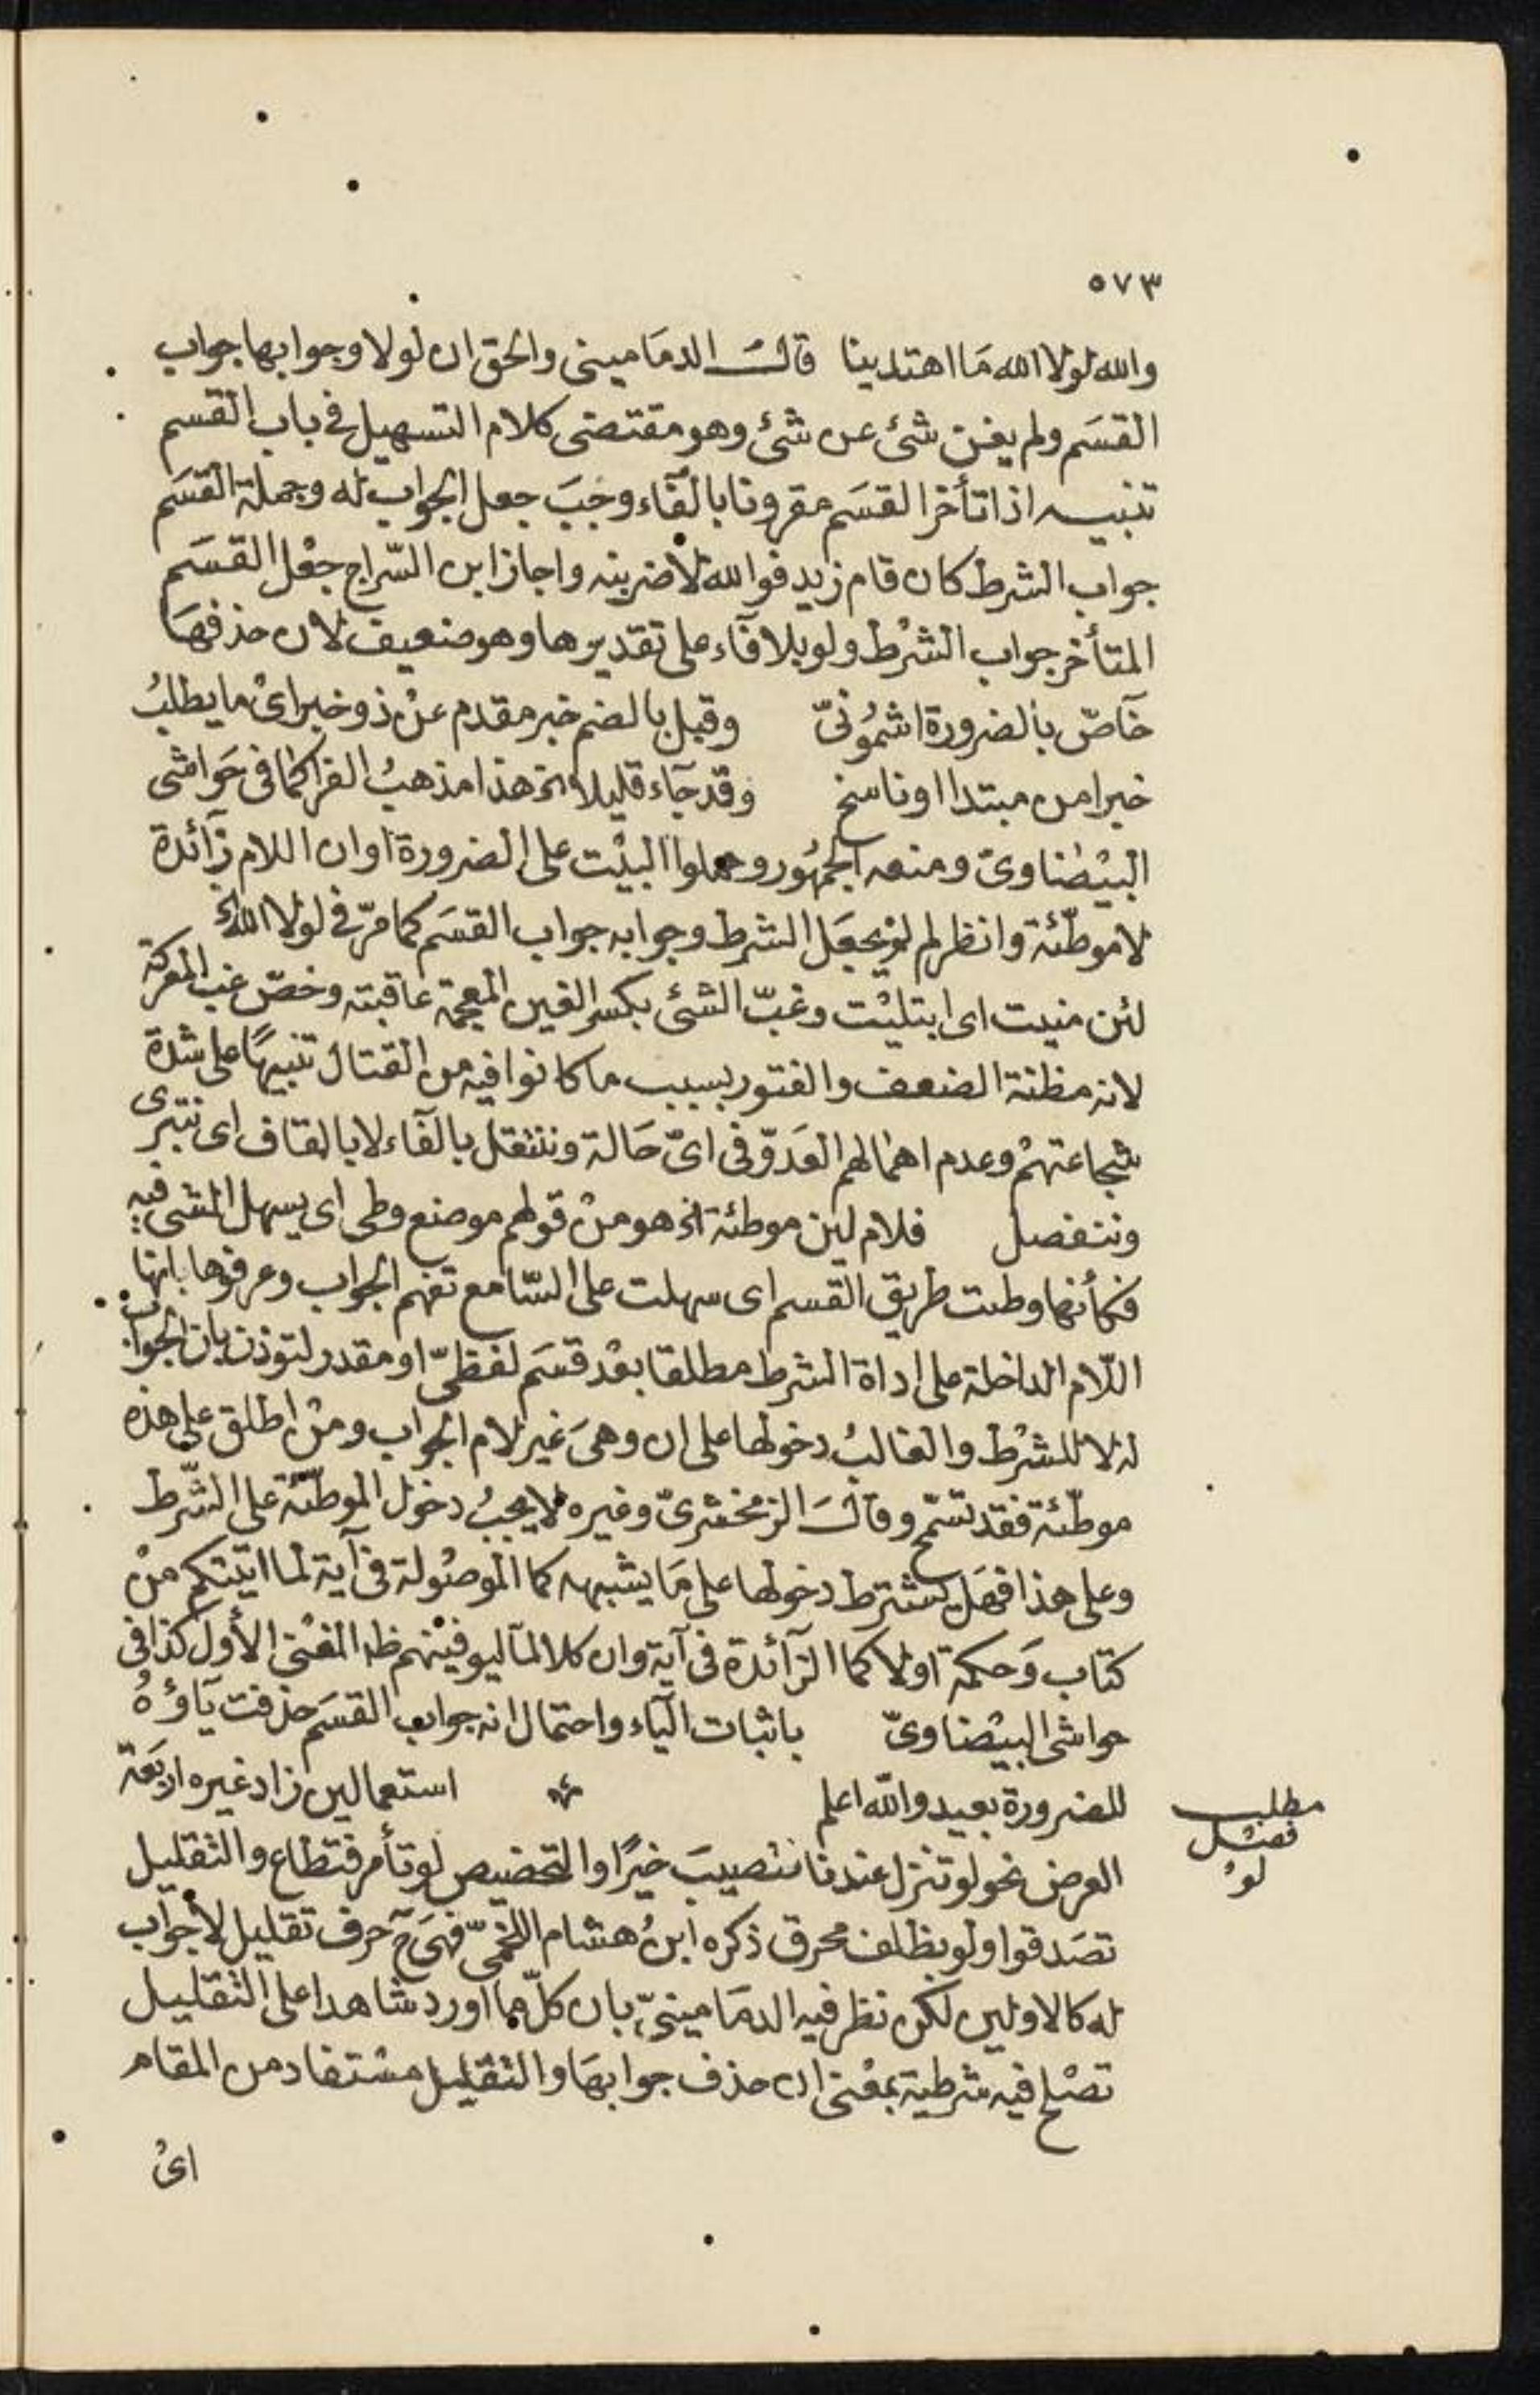 ٥٧٣
والله لولا الله مَا اهتدينا قالَ الدمَاميني والحق ان لولا وجوابها جواب
القسَم ولم يغن شئ عن شئ وهو مقتضى كلام التسهيل في باب القسم
تنبيه اذا تأخر القسَم مقرونا بالفآء وجَبَ جعل الجواب له وجملة القسَم
جواب الشرط كان قام زيد فوالله لأضربنه واجاز ابن السّراج جعْل القسَم
المتأخر جواب الشرْط ولو بلا فآء على تقديرها وهو ضعيف لان حذفهَا
خآصّ بالضرورة اشمُونيّ وقبل بالضم خبر مقدم عنْ ذو خبر اىْ ما يطلبُ
خبرا من مبتدا او ناسخ وقد جآء قليلا الخ هذا مذهبُ الفرا كما في حَواشى
البيْضاوىّ ومنعه الجمهُور وحملوا البيْت على الضرورة او ان اللام زآئدة
لا موطّئة وانظر لم لمْ يجعَل الشرط وجوابه جواب القسَم كما مرّ في لولا الله الخ
لئن منيت اى ابتليْت وغبّ الشئ بكسر الغين المعجمة عاقبته وخصّ غب المعركة
لانه مظنة الضعف والفتور بسبب ما كانوا فيه من القتال تنبيهًا على شدة
شجاعتهمْ وعدم اهمالهم العَدوّ فى اىّ حَالة وننتفل بالفآء لا بالقاف اى نتبرى
وننفصل فلام لين موطئة الخ هو منْ قولهم موضع وطى اى يسهل المشى فيه
فكأنها وطئت طريق القسم اى سهلت على السّامع تفهم الجواب وعرفوها بانها
اللّام الداخلة على اداة الشرط مطلقا بعْد قسَم لفظىّ او مقدر لتوذن بان الجواب
له لا للشرْط والغالبُ دخولها على ان وهىَ غير لام الجواب ومنْ اطلق على هذه
موطّئة فقد تسّمح وقالَ الزمخشرىّ وغيره لا يجبُ دخول الموطّئة على الشّرط
وعلى هذا فهَل يشترط دخولها على مَا يشبهه كما الموصُولة فى آية لما اتيتكم منْ
كتاب وَحكمة اولا كما الزآئدة فى آية وان كلا لمّا ليوفينْهم ظ المغنى الأول كذا فى
حواشى البيْضاوىّ باثبات اليآء واحتمال انه جواب القسَم حذفت يآؤهُ
للضرورة بعيد والله اعلم استعمالين زاد غيره اربَعَة
مطلب
فصْل
لوْ
العرض نحو لو تنزل عندنا فتصيبَ خيرًا والتحضيص لو تأمر فتطاع والتقليل
تصَدقوا ولو بظلف محرق ذكره ابنُ هشام اللخميّ فهىَ ح حرف تقليل لا جواب
له كالاولين لكن نظر فيه الدمَامينىّ بان كلّ مما اورد شاهدا على التقليل
تصْلح فيه شرطية بمعْنى ان حذف جوابهَا والتقليل مسْتفاد من المقام
اىْ